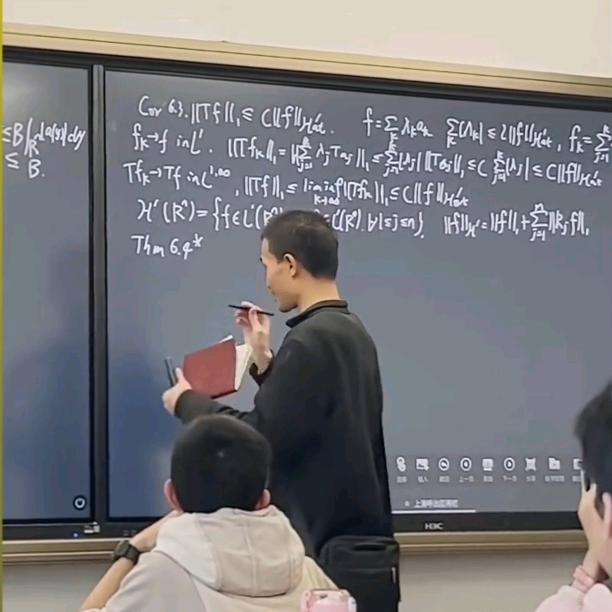 ≤B∫_{R^n}|a(y)|dy
≤ B.
Cor 6.3. ||Tf||_1 ≤ C||f||_{H^1_at}. f=Σ_k λ_k a_k Σ_k|λ_k| ≤ 2||f||_{H^1_at}, f_k=Σ
f_k→f in L^1. ||Tf_k||_1=||Σ_{j=1}^k λ_j Ta_j||_1 ≤ Σ_{j=1}^k |λ_j| ||Ta_j||_1 ≤ C Σ_{j=1}^k |λ_j| ≤ C||f||_{H^1_at}
Tf_k→Tf in L^{1,∞}, ||Tf||_1 ≤ liminf_{k→∞} ||Tf_k||_1 ≤ C||f||_{H^1_at}
H^1(R^n)={f∈L^1(R^n) ∈L^1(R^n) ∀1≤j≤n}. ||f||_{H^1}=||f||_1+Σ_{j=1}^n||R_j f||_1
Thm 6.4*
上一页 下一页
H3C